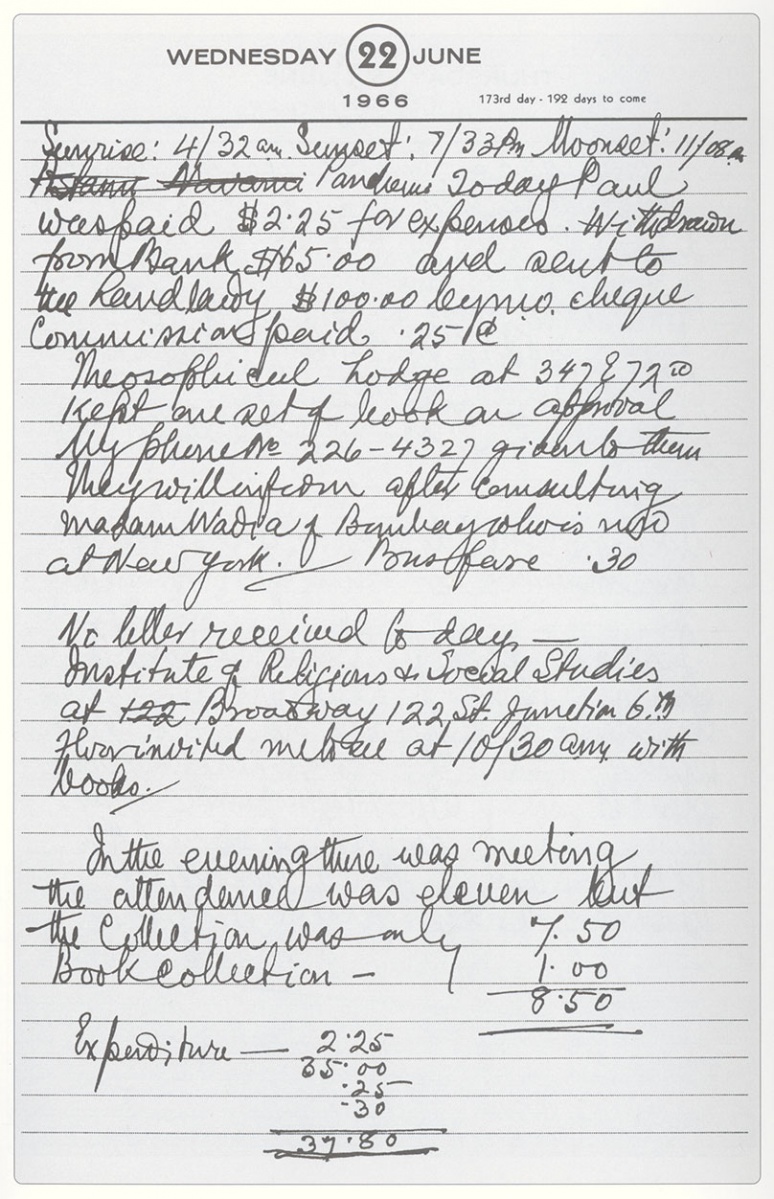 WEDNESDAY 22 JUNE
1966 173rd day - 192 days to come
Sunrise: 4/32 am. Sunset: 7/33 Pm Moonset: 11/08
Today Paul
was paid $2.25 for expenses. Withdrawn
from Bank $ and sent to
the Landlady $100.00 by cheque
Commission paid .25 ¢
Theosophical Lodge at 347 E 72
Kept one set of book on approval
My phone No 226-4327 given to them
They will inform after consulting
madam Wadia of Bombay who is
at New York. Bus fare .30
No letter received to day —
Institute of Religious & Social Studies
at 122 Broadway 122 St. Junction 6th
floor invited me to see at 10/30 am. with
books.
In the evening there was meeting
the attendance was eleven but
the Collection was only 7.50
Book collection — 1.00
8.50
Expenditure — 2.25
35.00
.25
.30
37.80